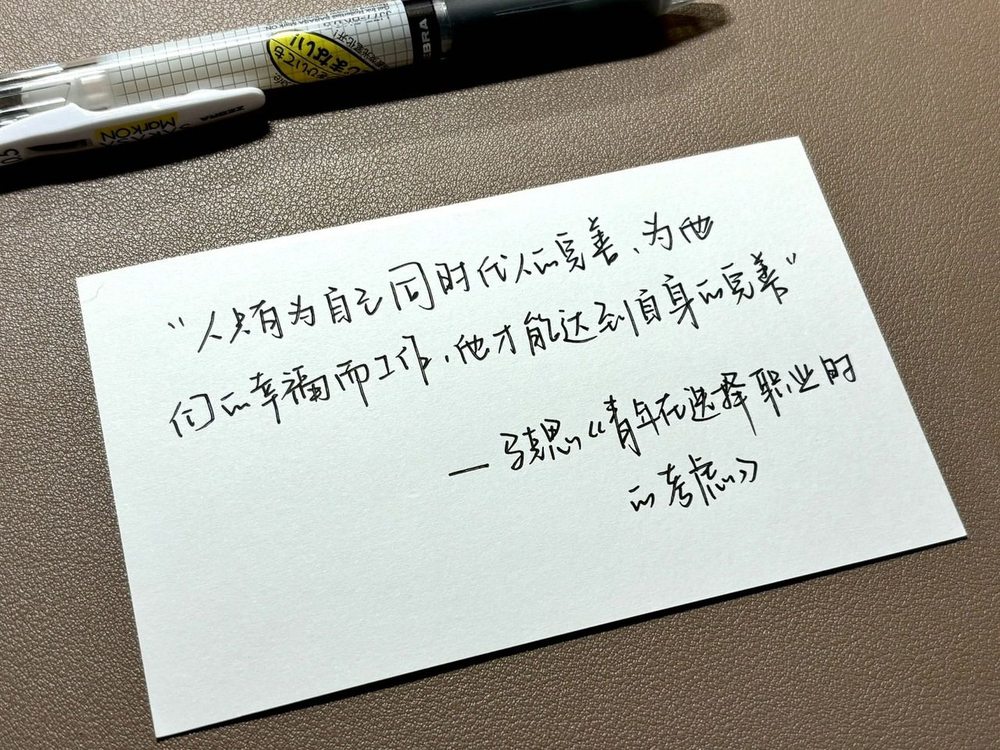 ZEBRA
じまない!
ZEBRA
MarkON
0.5
“人只有为自己同时代人的完善、为他
们的幸福而工作，他才能达到自身的完善”
— 马克思《青年在选择职业的时
的考虑》